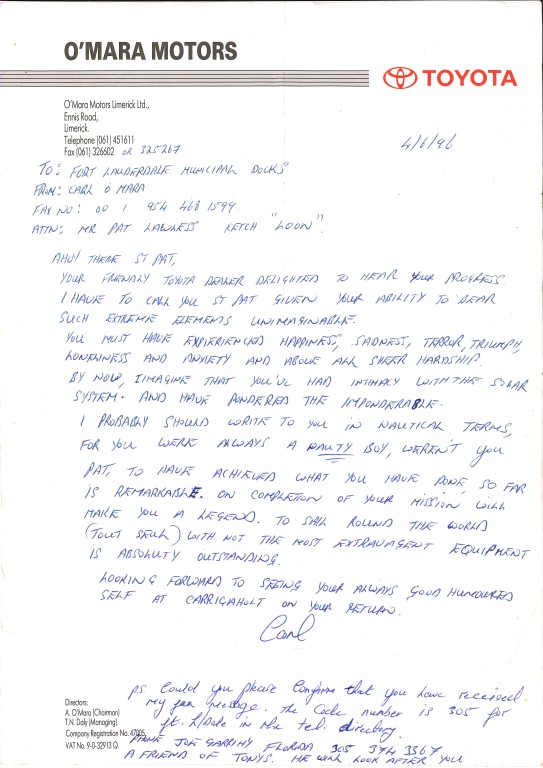 O'MARA MOTORS
TOYOTA
O'Mara Motors Limerick Ltd.,
Ennis Road,
Limerick.
Telephone (061) 451611
Fax (061) 326602 or 325267
4/6/96
TO: FORT LAUDERDALE MUNICIPAL DOCKS
FROM: CARL O MARA
FAX NO: 00 1 954 468 1599
ATTN: MR PAT LAWLESS KETCH "LOON".
AHOY THERE ST PAT,
YOUR FRIENDLY TOYOTA DEALER DELIGHTED TO HEAR YOUR PROGRESS.
I HAVE TO CALL YOU ST PAT GIVEN YOUR ABILITY TO BEAR
SUCH EXTREME ELEMENTS UNIMAGINABLE.
YOU MUST HAVE EXPERIENCED HAPPINESS, SADNESS, TERROR, TRIUMPH,
LONELINESS AND ANXIETY AND ABOVE ALL SHEER HARDSHIP.
BY NOW, I IMAGINE THAT YOU'VE HAD INTIMACY WITH THE SOLAR
SYSTEM. AND HAVE PONDERED THE IMPONDERABLE.
I PROBABLY SHOULD WRITE TO YOU IN NAUTICAL TERMS,
FOR YOU WERE ALWAYS A NAUTY BOY, WEREN'T YOU
PAT, TO HAVE ACHIEVED WHAT YOU HAVE DONE SO FAR
IS REMARKABLE. ON COMPLETION OF YOUR MISSION WILL
MAKE YOU A LEGEND. TO SAIL ROUND THE WORLD
(TOUT SEUL) WITH NOT THE MOST EXTRAVAGENT EQUIPMENT
IS ABSOLUTY OUTSTANDING.
LOOKING FORWARD TO SEEING YOUR ALWAYS GOOD HUMOURED
SELF AT CARRIGAHOLT ON YOUR RETURN.
Carl
ps. Could you please Confirm that you have received
my fax message. The Code number is 305 for
ft. L/Dale in the tel. directory.
PHONE JOE GARRIHY FLORIDA 305 374 3367
A FRIEND OF TONYS. HE WILL LOOK AFTER YOU
Directors:
A. O'Mara (Chairman)
T.N. Daly (Managing)
Company Registration No. 47005
VAT No. 9-0-32913 Q.